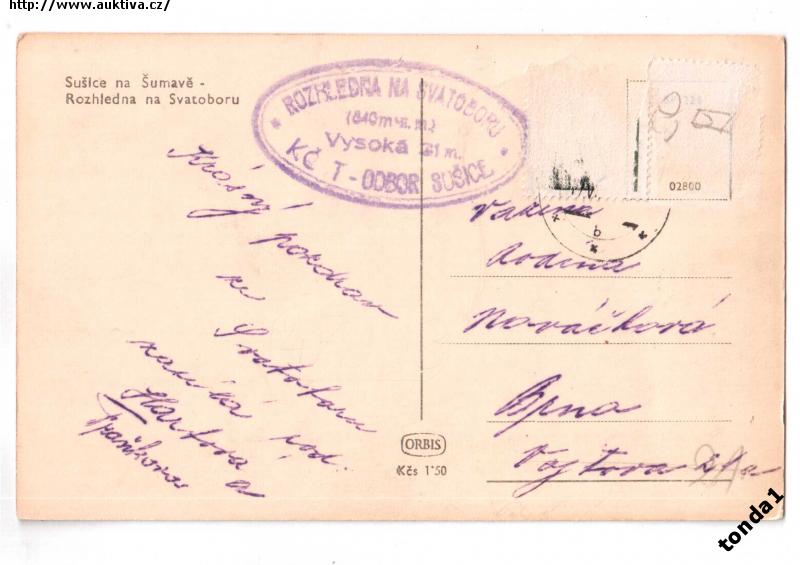 http://www.auktiva.cz/
Sušice na Šumavě -
Rozhledna na Svatoboru
ROZHLEDNA NA SVATOBORU
(845 m n. m.)
Vysoká 31 m.
KČ T - ODBOR SUŠICE
02800
b
Krásný pozdrav
ze Svatoboru
zasílá rod.
a
Vážená
rodina
Nováčková
Brno
Vojtova
ORBIS
Kčs 1'50
tonda1